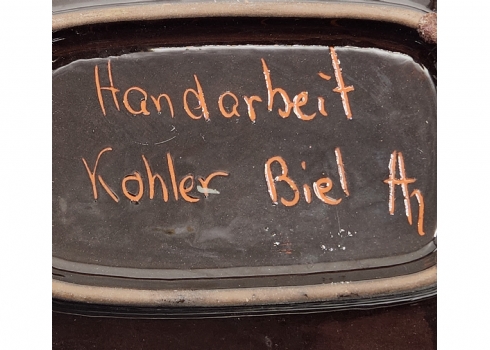 Handarbeit
Kohler Biel